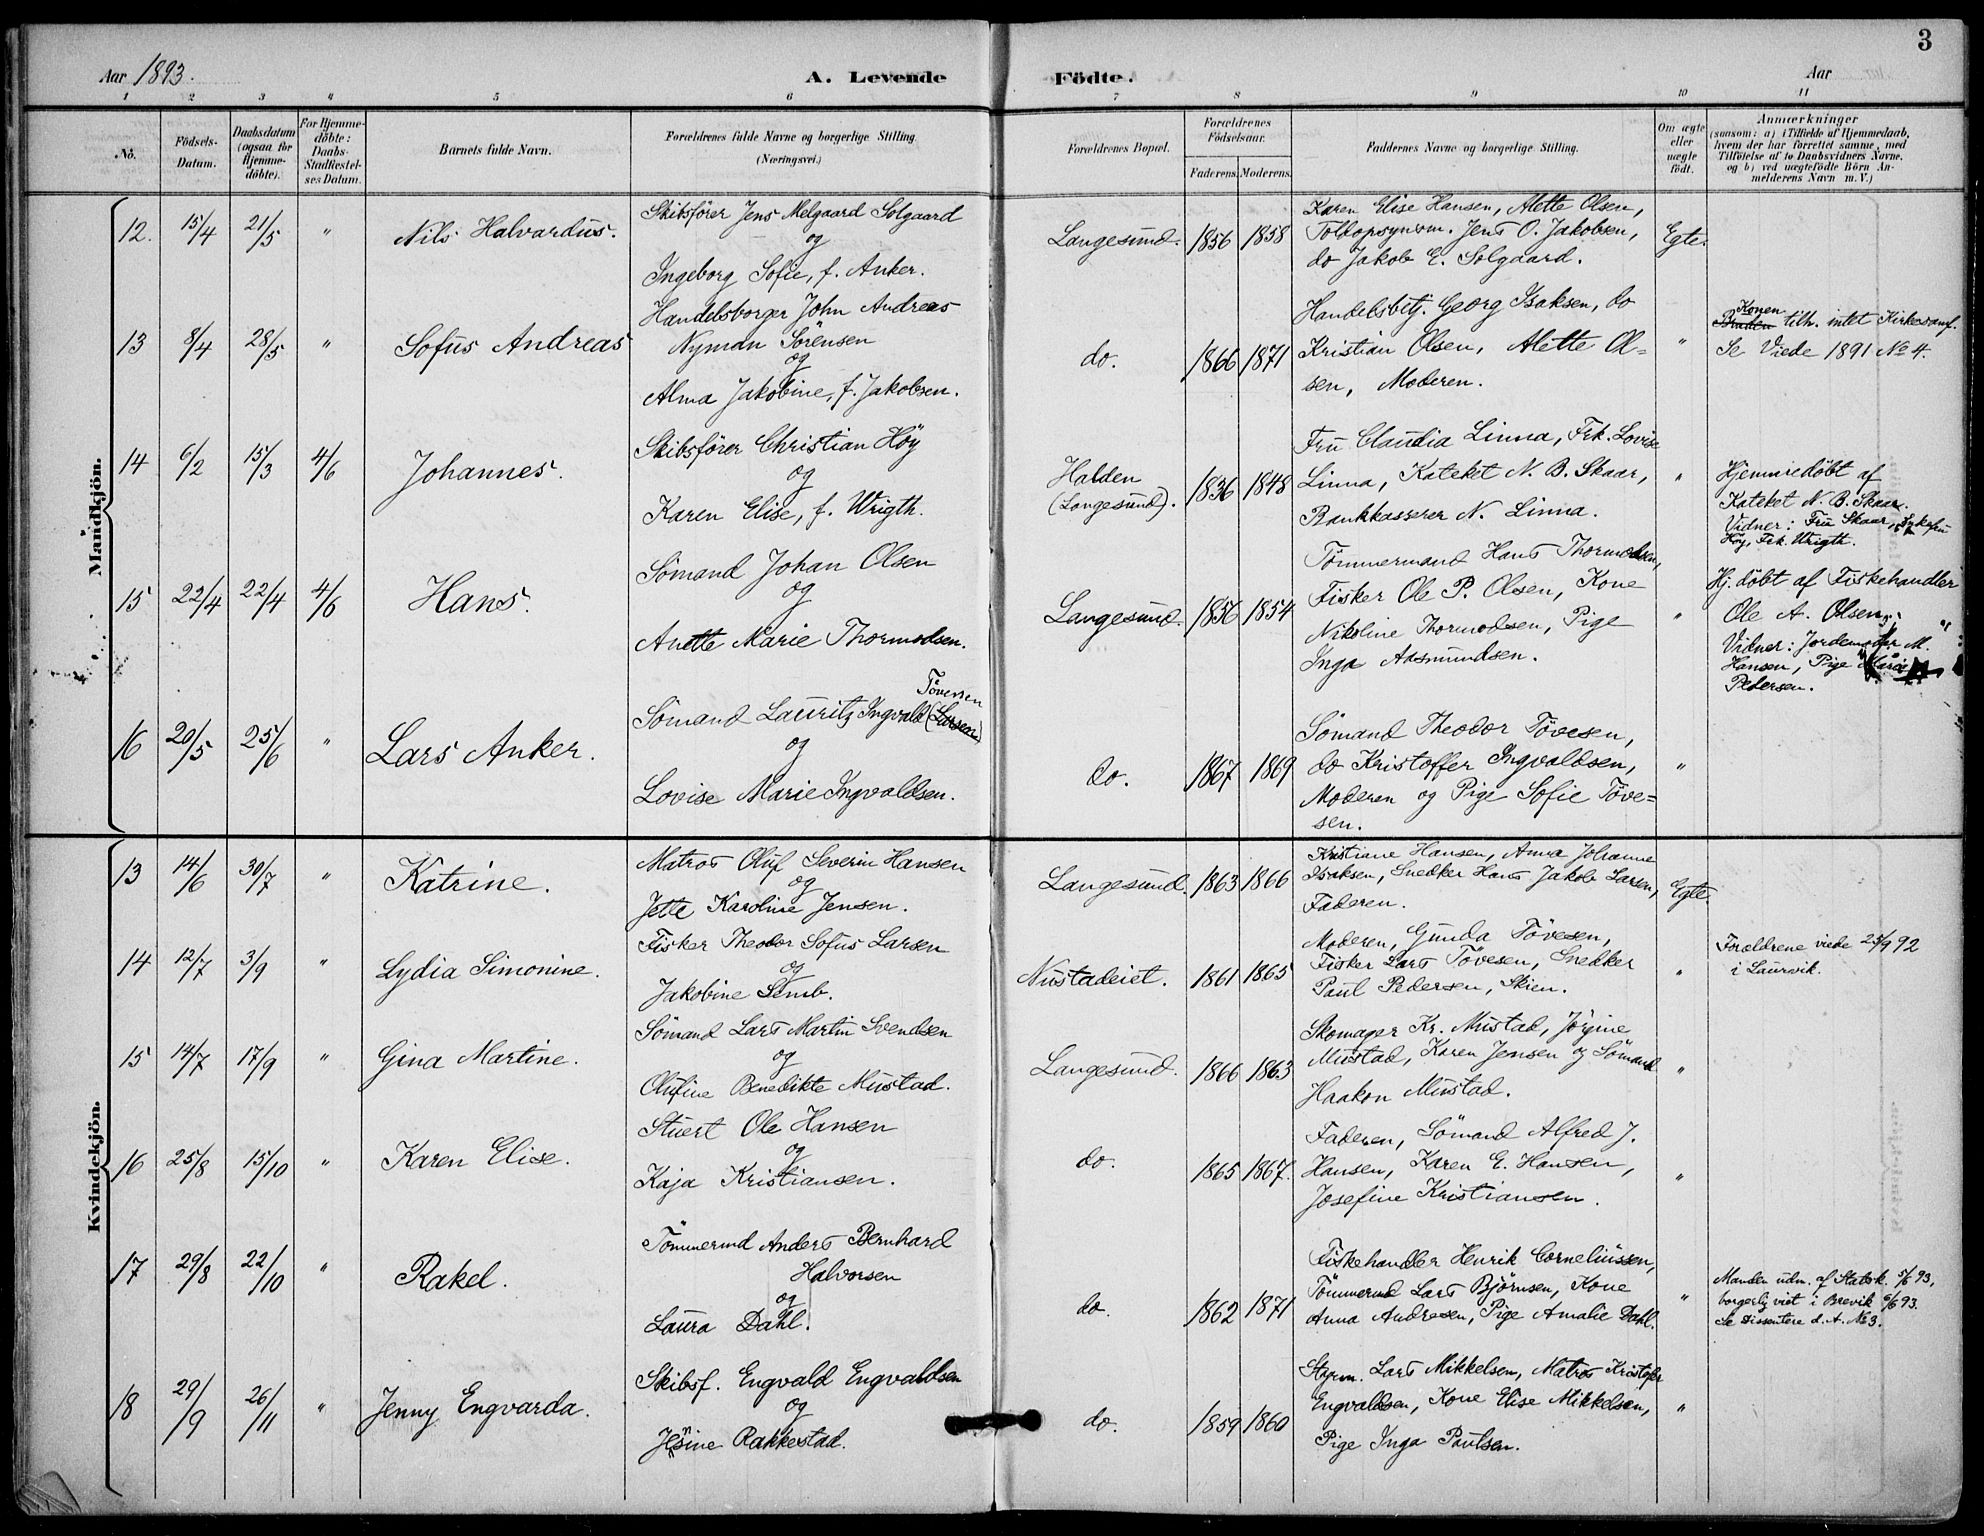 3
Aar 1893.
A. Levende
Födte.
Aar
1 2 3 4 5 6 7 8 9 10 11
No.
Födsels-
Datum.
Daabsdatum
(ogsaa for
Hjemme-
döbte).
For Hjemme-
döbte:
Daabs-
Stadfæstel-
ses Datum.
Barnets fulde Navn.
Forældrenes fulde Navne og borgerlige Stilling.
(Næringsvei.)
Forældrenes Bopæl.
Forældrenes
Födselsaar.
Faderens.
Moderens.
Faddernes Navne og borgerlige Stilling.
Om ægte
eller
uægte
födt.
Anmærkninger
(saasom: a) i Tilfælde af Hjemmedaab,
hvem der har forrettet samme, med
Tilföielse af to Daabsvidners Navne,
og b) ved uægtefödte Börn An-
melderens Navn m. V.)
Mandkjön.
12. 15/4 21/5 " Nils Halvardus.
Skibsfører Jens Melgaard Solgaard
og
Ingeborg Sofie, f. Anker.
Langesund. 1856 1858
Karen Elise Hansen, Alette Olsen,
Toldopsynsm. Jens O. Jakobsen,
do Jakob E. Solgaard.
Egte.
13 8/4 28/5 " Sofus Andreas
Handelsborger John Andreas
Nyman Sörensen
og
Alma Jakobine, f. Jakobsen.
do. 1866 1871
Handelsbetj. Georg Isaksen, do
Kristian Olsen, Alette Ol=
sen, Moderen.
"
Konen
Bruden tilh. intet Kirkesamf.
Se Viede 1891 No 4.
14 6/2 15/3 4/6 Johannes.
Skibsfører Christian Høy
og
Karen Elise, f. Wrigth.
Halden
(Langesund). 1836 1848
Fru Claudia Linna, Frk. Lovise
Linna, Kateket N. B. Skaar,
Bankkasserer N. Linna.
"
Hjemmedøbt af
Kateket N. B. Skaar.
Vidner: Fru Skaar,
Høy, Frk. Wrigth.
15 22/4 22/4 4/6 Hans.
Sömand Johan Olsen
og
Anette Marie Thormodsen.
Langesund. 1856 1854
Tömmermand Hans Thormodsen,
Fisker Ole P. Olsen, Kone
Nikoline Thormodsen, Pige
Inga Aasmundsen.
"
Hj. døbt af Fiskehandler
Ole A. Olsen;
Vidner: Jordemoder M.
Hansen, Pige Maria
Pedersen.
16 20/5 25/6 " Lars Anker.
Tövesen
Sömand Lauritz Ingvald (Larsen)
og
Lovise Marie Ingvaldsen.
do. 1867 1869
Sömand Theodor Tövesen,
do Kristoffer Ingvaldsen,
Moderen og Pige Sofie Töve=
sen.
"
Kvindekjön.
13 14/6 30/7 " Katrine.
Matros Oluf Severin Hansen
og
Jette Karoline Jensen.
Langesund. 1863 1866
Kristiane Hansen, Anna Johanne
Isaksen, Snedker Hans Jakob Larsen,
Faderen.
Egte.
14 12/7 3/9 " Lydia Simonine.
Fisker Theodor Sofus Larsen
og
Jakobine Semb.
Nustadeiet. 1861 1865
Moderen, Gunda Tövesen,
Fisker Lars Tövesen, Snekker
Paul Pedersen, Skien.
"
Forældrene viede 25/9 92
i Laurvik.
15 14/7 17/9 " Gina Martine.
Sömand Lars Martin Svendsen
og
Olufine Benedikte Mustad.
Langesund. 1866 1863
Skomager Kr. Mustad, Jörgine
Mustad, Karen Jensen og Sömand
Haakon Mustad.
"
16 25/8 15/10 " Karen Elise.
Stuert Ole Hansen
og
Kaja Kristiansen.
do. 1865 1867.
Faderen, Sömand Alfred J.
Hansen, Karen E. Hansen,
Josefine Kristiansen.
"
17 29/8 22/10 " Rakel.
Tömmermd Anders Bernhard
Halvorsen
og
Laura Dahl.
do. 1862 1871
Fiskehandler Henrik Corneliussen,
Tömmermd Lars Björnsen, Kone
Anna Andresen, Pige Amalie Dahl.
"
Manden udm. af Statsk. 5/6 93,
borgerlig viet i Brevik 6/6 93.
Se Dissentere d. A. No 3.
18 29/9 26/11 " Jenny Engvarda.
Skibsf. Engvald Engvaldsen
og
Jesine Rakkestad.
do. 1859 1860
Styrm. Lars Mikkelsen, Matros Kristofer
Engvaldsen, Kone Elise Mikkelsen,
Pige Inga Paulsen.
"